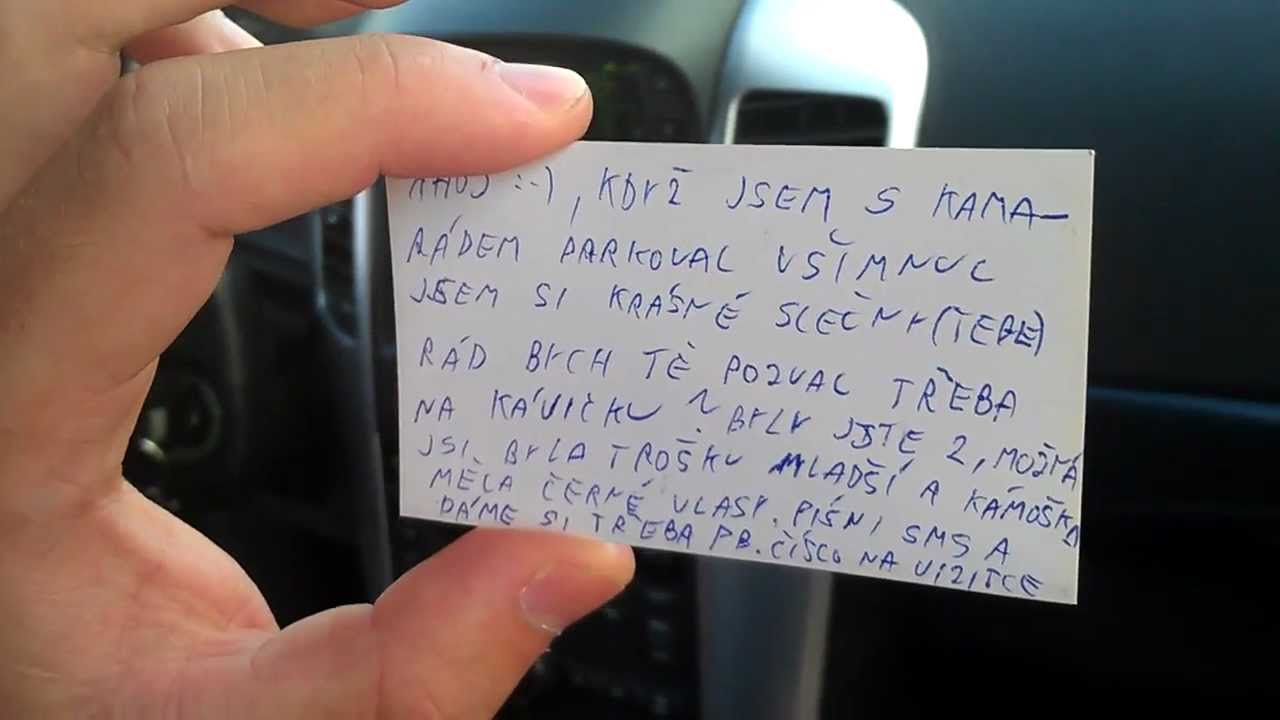 AHOJ :-), KDYŽ JSEM S KAMA-
RÁDEM PARKOVAL VŠIMNUL
JSEM SI KRÁSNÉ SLEČNY (TEBE)
RÁD BYCH TĚ POZVAL TŘEBA
NA KÁVIČKU ? BYLY JSTE 2, MOŽNÁ
JSI BYLA TROŠKU MLADŠÍ A KÁMOŠKA
MĚLA ČERNÉ VLASY. PIŠNI SMS A
DÁME SI TŘEBA PB. ČÍSLO NA VIZITCE